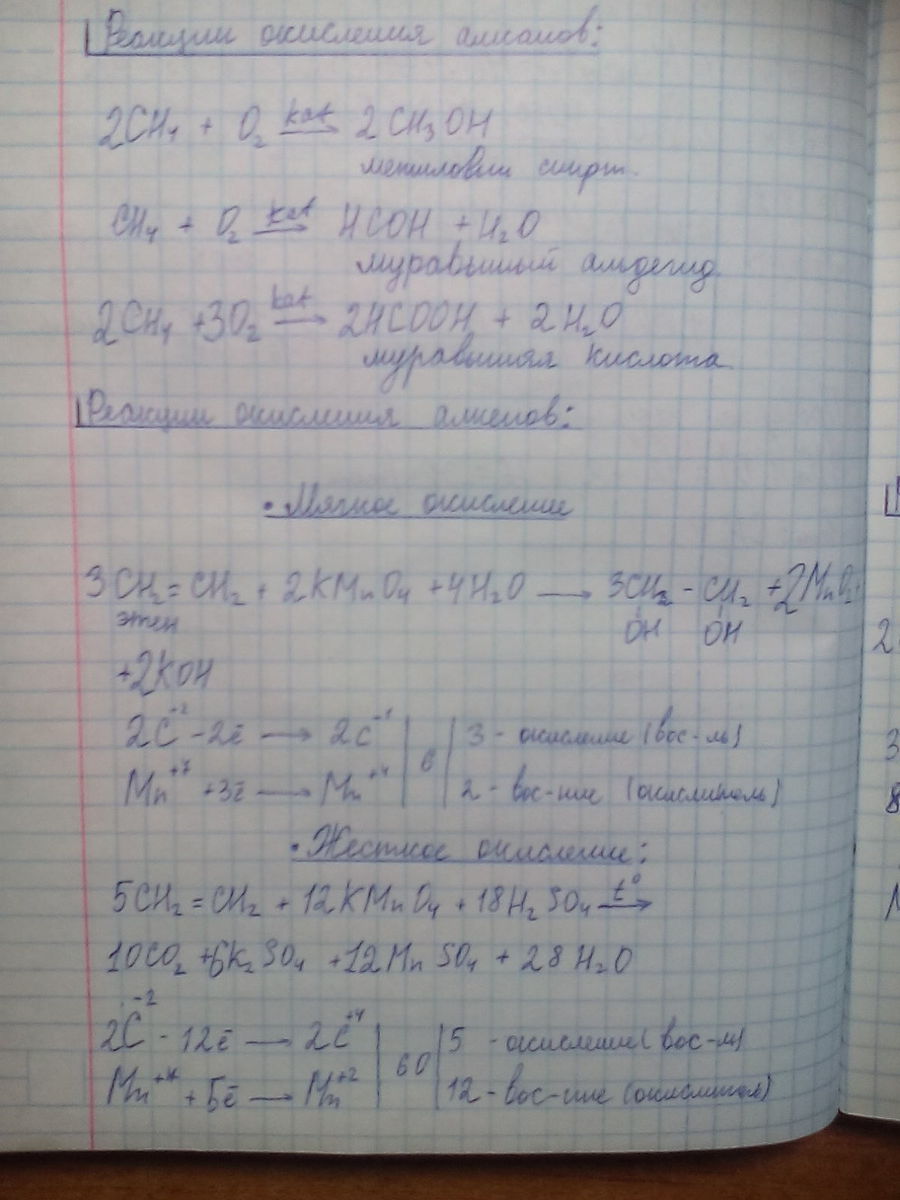 Реакции окисления алканов:
2CH₄ + O₂ kat→ 2CH₃OH
метиловый спирт.
CH₄ + O₂ kat→ HCOH + H₂O
муравьиный альдегид.
2CH₄ +3O₂ kat→ 2HCOOH + 2H₂O
муравьиная кислота
Реакции окисления алкенов:
• Мягкое окисление
3CH₂=CH₂ + 2KMnO₄ +4H₂O → 3CH₂ - CH₂ +2MnO₂+
этен OH OH
+2KOH
2C⁻² -2ē → 2C⁻¹ | 6 | 3 - окисление (вос-ль)
Mn⁺⁷ +3ē → Mn⁺⁴ | | 2 - вос-ние (окислитель)
• Жесткое окисление:
5CH₂=CH₂ + 12KMnO₄ + 18H₂SO₄ t°→
10CO₂ +6K₂SO₄ +12MnSO₄ + 28H₂O
2C⁻² - 12ē → 2C⁺⁴ | 60 | 5 - окисление (вос-ль)
Mn⁺⁷ + 5ē → Mn⁺² | | 12 - вос-ние (окислитель)
2
3
8